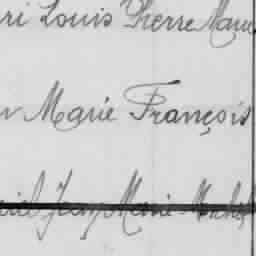 ri Louis Pierre Marie
n Marie François
riel Jean Marie Michel